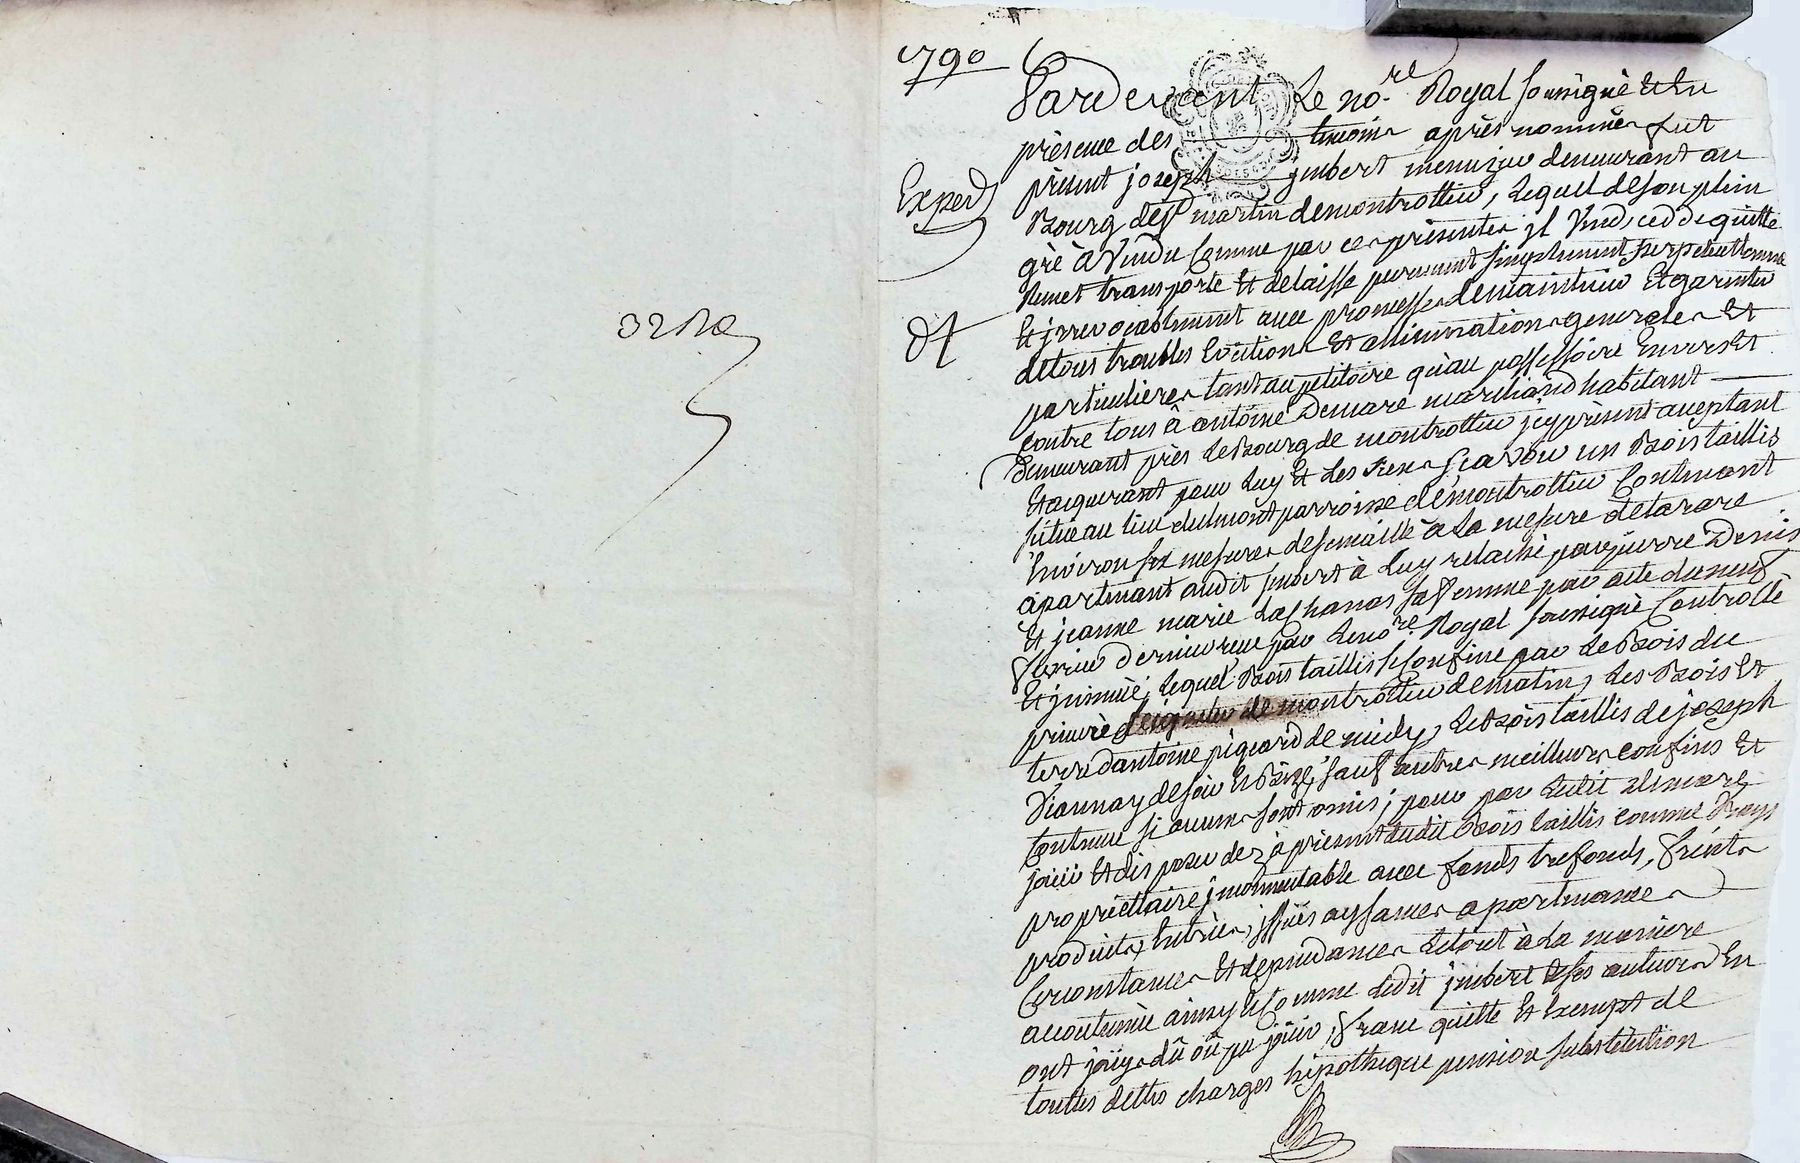 1790
Expéd
Pardevant Le no.re Royal soussigné Et En
présence des temoins après nommés fut
présent joseph jmbert menuzier demeurant au
Bourg de St martin demontrottier, Lequel deson plein
gré à Vendu Comme par ces présentes jl Vend, cedde quitte
Remet transporte Et delaisse purement simplement perpetuellement
Et jrrevocablement avec promesse demaintenir Etgarentir
detous troubles Evictions Et allienations generales Et
particulieres tantau petitoire qu'au possessoire Envers Et
Contre tous â antoine Demare marchand habitant
Demeurant près LeBourg de montrottier jcy présent aceptant
Etaquerant pour Luy Et Les siens sçavoir un Bois taillis
situé au lieu dulmont parroisse demontrottier Contenant
Environ six mesures desemaille à La mesure detarare
apartenant audit jmbert à Luy relaché par pierre Denis
Et jeanne marie Laschanas sa femme par acte duneuf
fevrier dernier reçu par Leno.re Royal soussigné Controllé
Et jnsinué, Lequel Bois taillis se Confine par Le Bois du
prieuré seigneur de montrottier dematin, Les Bois Et
terre dantoine piquard de midy, LeBois taillis de joseph
Viannay desoir Et Bize, sauf autres meilleurs confins Et
Contenue si aucuns sont omis; pour par Ledit Demare
jouir Et disposer dez à présent dudit Bois taillis comme Vray
propriettaire jncommutable avec fonds trefonds, fruits
produits, Entrées, jssües aysances apartenances
Circonstances Et dependances Letout à La maniere
accoutumée ainsy Et Comme Ledit jmbert Et ses auteurs En
ont joüy dû où pu joüir, franc quitte Et Exempt de
touttes dettes charges hipotheque pension substitution